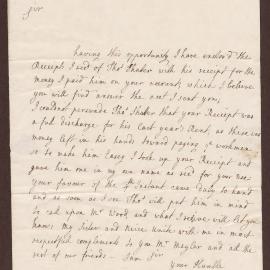 Sir
having this opportunity I have enclosed the
Receipts I red of Thos Thaker with his receipt for the
money I paid him on your account, which I believe
you will find answer the next I sent you,
I could not perswade Thos Thaker that your Receipt was
a full discharge for his last year's Rent, as there was
money left in his hands toward paying ye workmen
so to make him Easey I took up your Receipt and
gave him one in my own name as red for your use
your favour of the 4th Instant came duly to hand
and as soon as I see Thos will put him in mind
to call upon Mr Wood and what I receive will let you
know: My Sister and Niece Unite with me in most
respectfull complements to you Mr Mayler and all the
rest of our friends – I am Sir
Your Humble